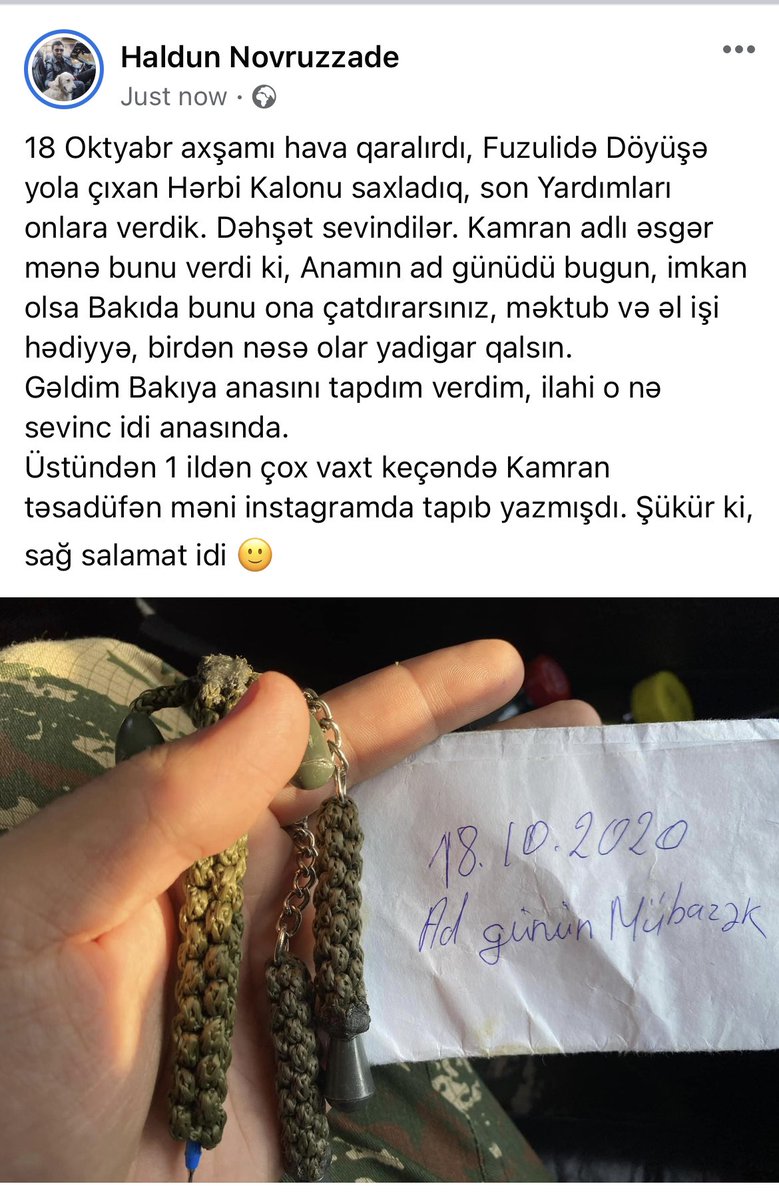 Haldun Novruzzade
Just now
18 Oktyabr axşamı hava qaralırdı, Fuzulidə Döyüşə
yola çıxan Hərbi Kalonu saxladıq, son Yardımları
onlara verdik. Dəhşət sevindilər. Kamran adlı əsgər
mənə bunu verdi ki, Anamın ad günüdü bugun, imkan
olsa Bakıda bunu ona çatdırarsınız, məktub və əl işi
hədiyyə, birdən nəsə olar yadigar qalsın.
Gəldim Bakıya anasını tapdım verdim, ilahi o nə
sevinc idi anasında.
Üstündən 1 ildən çox vaxt keçəndə Kamran
təsadüfən məni instagramda tapıb yazmışdı. Şükür ki,
sağ salamat idi 🙂
18.10.2020
Ad günün Mübarək